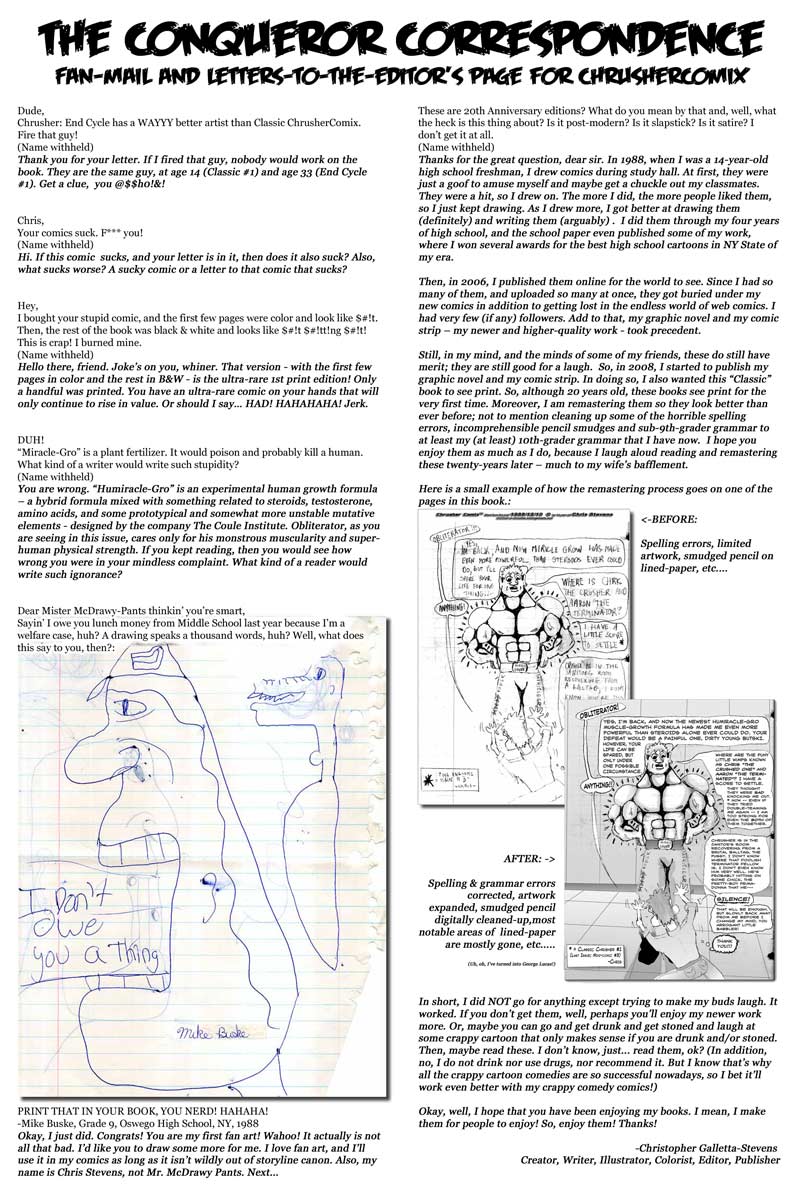 THE CONQUEROR CORRESPONDENCE
FAN-MAIL AND LETTERS-TO-THE-EDITOR'S PAGE FOR CHRUSHERCOMIX
Dude,
Chrusher: End Cycle has a WAYYY better artist than Classic ChrusherComix.
Fire that guy!
(Name withheld)
Thank you for your letter. If I fired that guy, nobody would work on the
book. They are the same guy, at age 14 (Classic #1) and age 33 (End Cycle
#1). Get a clue,  you @$$h0!&!
Chris,
Your comics suck. F*** you!
(Name withheld)
Hi. If this comic  sucks, and your letter is in it, then does it also suck? Also,
what sucks worse? A sucky comic or a letter to that comic that sucks?
Hey,
I bought your stupid comic, and the first few pages were color and look like $#!t.
Then, the rest of the book was black & white and looks like $#!t $#!tt!ng $#!t!
This is crap! I burned mine.
(Name withheld)
Hello there, friend. Joke's on you, whiner. That version - with the first few
pages in color and the rest in B&W - is the ultra-rare 1st print edition! Only
a handful was printed. You have an ultra-rare comic on your hands that will
only continue to rise in value. Or should I say... HAD! HAHAHAHA! Jerk.
DUH!
“Miracle-Gro” is a plant fertilizer. It would poison and probably kill a human.
What kind of a writer would write such stupidity?
(Name withheld)
You are wrong. “Humiracle-Gro” is an experimental human growth formula
– a hybrid formula mixed with something related to steroids, testosterone,
amino acids, and some prototypical and somewhat more unstable mutative
elements - designed by the company The Coule Institute. Obliterator, as you
are seeing in this issue, cares only for his monstrous muscularity and super-
human physical strength. If you kept reading, then you would see how
wrong you were in your mindless complaint. What kind of a reader would
write such ignorance?
Dear Mister McDrawy-Pants thinkin' you're smart,
Sayin' I owe you lunch money from Middle School last year because I'm a
welfare case, huh? A drawing speaks a thousand words, huh? Well, what does
this say to you, then?:
I Don't
owe
you a thing
Mike Buske
PRINT THAT IN YOUR BOOK, YOU NERD! HAHAHA!
-Mike Buske, Grade 9, Oswego High School, NY, 1988
Okay, I just did. Congrats! You are my first fan art! Wahoo! It actually is not
all that bad. I'd like you to draw some more for me. I love fan art, and I'll
use it in my comics as long as it isn't wildly out of storyline canon. Also, my
name is Chris Stevens, not Mr. McDrawy Pants. Next...
These are 20th Anniversary editions? What do you mean by that and, well, what
the heck is this thing about? Is it post-modern? Is it slapstick? Is it satire? I
don't get it at all.
(Name withheld)
Thanks for the great question, dear sir. In 1988, when I was a 14-year-old
high school freshman, I drew comics during study hall. At first, they were
just a goof to amuse myself and maybe get a chuckle out my classmates.
They were a hit, so I drew on. The more I did, the more people liked them,
so I just kept drawing. As I drew more, I got better at drawing them
(definitely) and writing them (arguably) .  I did them through my four years
of high school, and the school paper even published some of my work,
where I won several awards for the best high school cartoons in NY State of
my era.
Then, in 2006, I published them online for the world to see. Since I had so
many of them, and uploaded so many at once, they got buried under my
new comics in addition to getting lost in the endless world of web comics. I
had very few (if any) followers. Add to that, my graphic novel and my comic
strip – my newer and higher-quality work - took precedent.
Still, in my mind, and the minds of some of my friends, these do still have
merit; they are still good for a laugh.  So, in 2008, I started to publish my
graphic novel and my comic strip. In doing so, I also wanted this “Classic”
book to see print. So, although 20 years old, these books see print for the
very first time. Moreover, I am remastering them so they look better than
ever before; not to mention cleaning up some of the horrible spelling
errors, incomprehensible pencil smudges and sub-9th-grader grammar to
at least my (at least) 10th-grader grammar that I have now.  I hope you
enjoy them as much as I do, because I laugh aloud reading and remastering
these twenty-years later – much to my wife's bafflement.
Here is a small example of how the remastering process goes on one of the
pages in this book.:
<-BEFORE:
Spelling errors, limited
artwork, smudged pencil on
lined-paper, etc....
OBLITERATOR!!
BACK, AND NOW MIRACLE GROW HAS MADE
EVEN MORE POWERFUL THAN STEROIDS EVER COULD
ANYTHING!
WHERE IS CHRIS
THE CRUSHER AND
AARON "THE
TERMINATOR?
I HAVE A
LITTLE SCORE
TO SETTLE
OBLITERATOR!
YES, I'M BACK, AND NOW THE NEWEST HUMIRACLE-GRO
MUSCLE-GROWTH FORMULA HAS MADE ME EVEN MORE
POWERFUL THAN STEROIDS ALONE EVER COULD DO. YOUR
DEFEAT WOULD BE A PAINFUL ONE, DIRTY YOUNG BUTSKI.
HOWEVER, YOUR
LIFE CAN BE
SPARED, BUT
ONLY UNDER
ONE POSSIBLE
CIRCUMSTANCE.
ANYTHING!!
WHERE ARE THE PUNY
LITTLE WIMPS KNOWN
AS CHRIS "THE
CRUSHED ONE" AND
AARON "THE TERMI-
NATED?" I HAVE A
SCORE TO SETTLE.
SILENCE!
THANK
YOU!!
* = CLASSIC CHRUSHER #1
-CHRIS
AFTER: ->
Spelling & grammar errors
corrected, artwork
expanded, smudged pencil
digitally cleaned-up,most
notable areas of  lined-paper
are mostly gone, etc.....
(Uh, oh, I've turned into George Lucas!)
In short, I did NOT go for anything except trying to make my buds laugh. It
worked. If you don't get them, well, perhaps you'll enjoy my newer work
more. Or, maybe you can go and get drunk and get stoned and laugh at
some crappy cartoon that only makes sense if you are drunk and/or stoned.
Then, maybe read these. I don't know, just... read them, ok? (In addition,
no, I do not drink nor use drugs, nor recommend it. But I know that's why
all the crappy cartoon comedies are so successful nowadays, so I bet it'll
work even better with my crappy comedy comics!)
Okay, well, I hope that you have been enjoying my books. I mean, I make
them for people to enjoy! So, enjoy them! Thanks!
-Christopher Galletta-Stevens
Creator, Writer, Illustrator, Colorist, Editor, Publisher